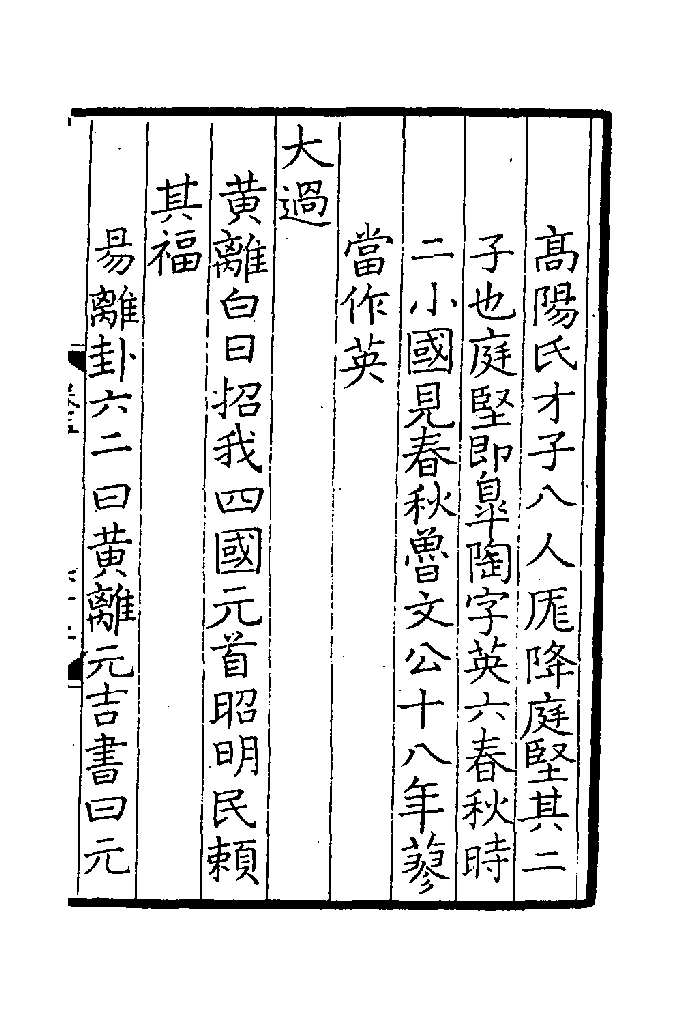 髙陽氏才子八人厖降庭堅其二
子也庭堅即臯陶字英六春秋時
二小國見春秋魯文公十八年蓼
當作英
大過
黃離白日招我四國元首昭明民賴
其福
易離卦六二曰黃離元吉書曰元